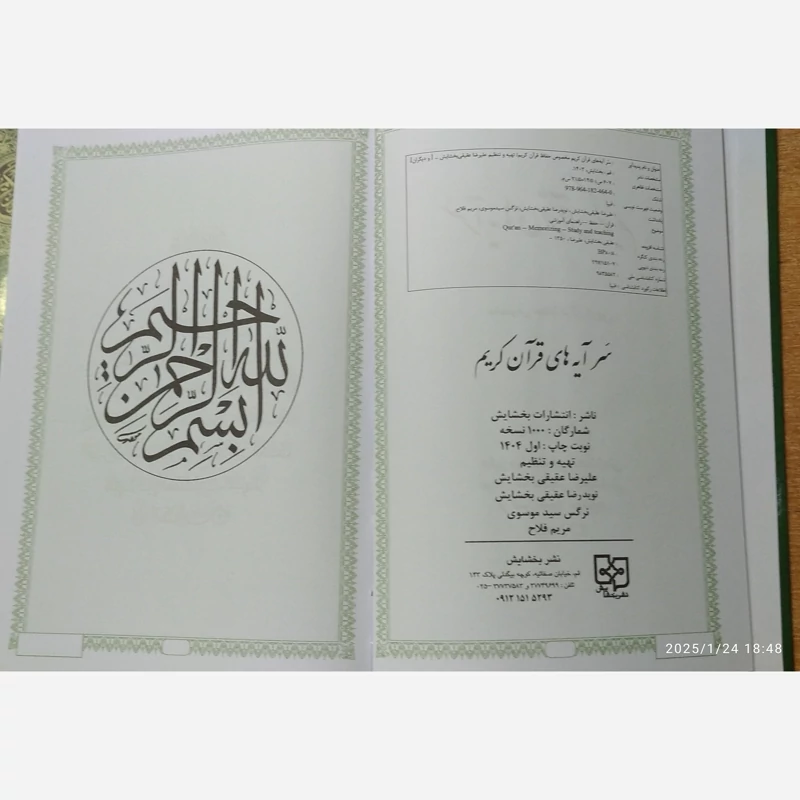 بسم الله الرحمن الرحیم
عنوان و نام پدیدآور : سر آیه‌های قرآن کریم مخصوص حفاظ قرآن کریم/ تهیه و تنظیم علیرضا عقیقی‌بخشایش ... [و دیگران].
مشخصات نشر : قم: بخشایش، ۱۴۰۳.
مشخصات ظاهری
شابک 978-964-182-464-0
وضعیت فهرست نویسی : فیپا
یادداشت : علیرضا عقیقی‌بخشایش، نویدرضا عقیقی‌بخشایش، نرگس سیدموسوی، مریم فلاح.
موضوع : قرآن -- حفظ -- راهنمای آموزشی
Qur'an -- Memorizing -- Study and teaching
شناسه افزوده : عقیقی بخشایش، علیرضا، ۱۳۵۰ -
رده بندی کنگره
رده بندی دیویی
شماره کتابشناسی ملی
اطلاعات رکورد کتابشناسی : فیپا
سَر آیه های قرآن کریم
ناشر : انتشارات بخشایش
شمارگان : ۱۰۰۰ نسخه
نوبت چاپ : اول ۱۴۰۴
تهیه و تنظیم
علیرضا عقیقی بخشایش
نویدرضا عقیقی بخشایش
نرگس سید موسوی
مریم فلاح
نشر بخشایش
قم، خیابان صفائیه، کوچه بیگدلی پلاک ۱۳۳
تلفن : ۳۷۷۳۹۶۹۹ و ۳۷۷۳۷۵۸۲ -۰۲۵
۰۹۱۲ ۱۵۱ ۵۲۹۳
نشر بخشایش
2025/1/24 18:48